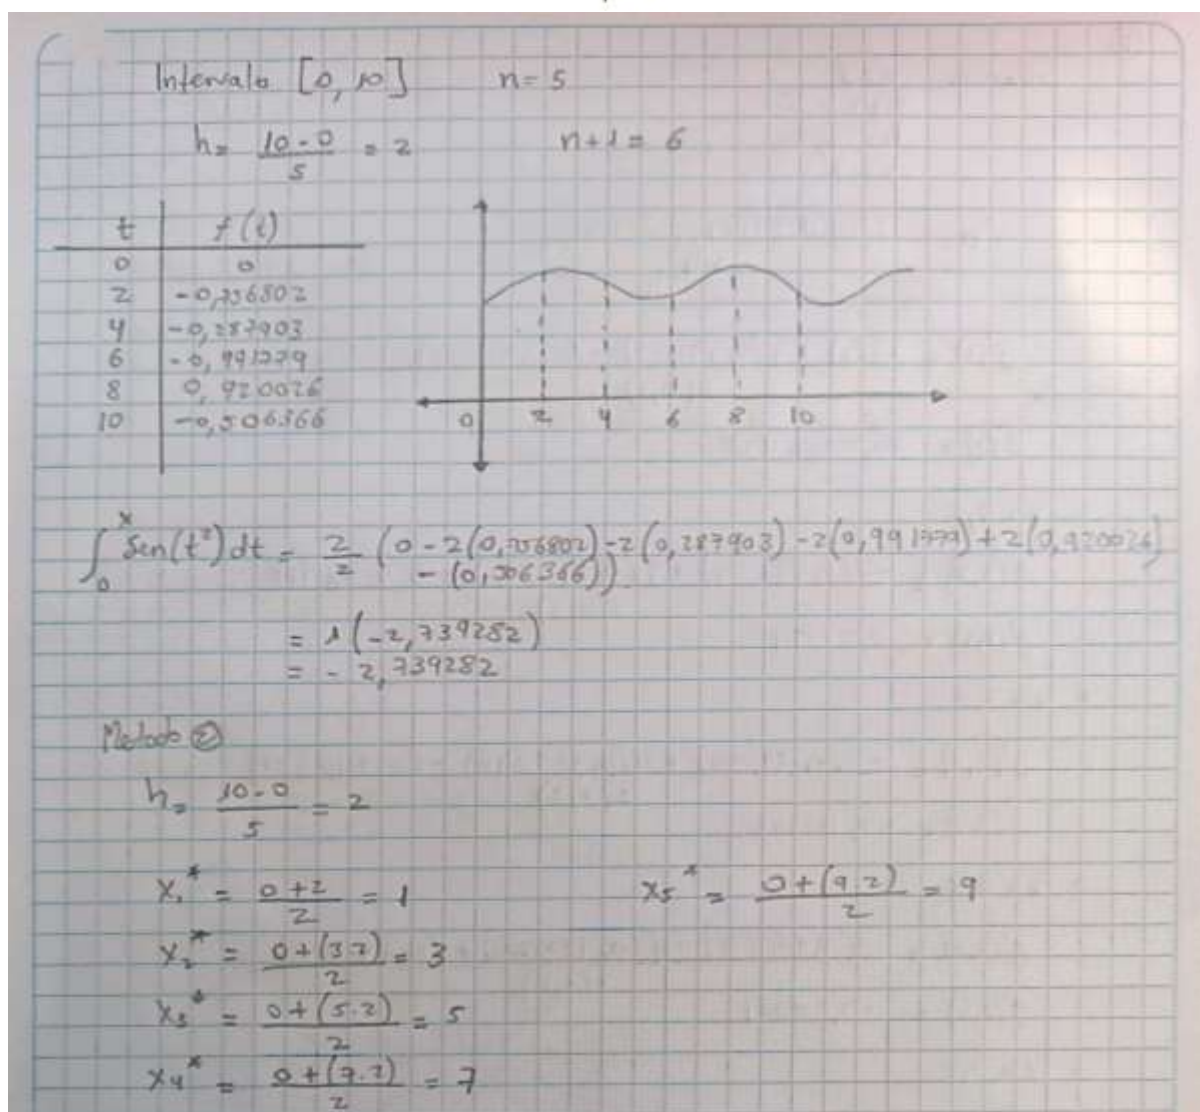 Intervalo [0, 10] n= 5
h= (10-0)/5 = 2 n+1= 6
t f(t)
0 0
2 -0,756802
4 -0,287903
6 -0,991779
8 0,920026
10 -0,506366
0 2 4 6 8 10
∫₀ˣ Sen(t²)dt = 2/2 (0-2(0,756802)-2(0,287903)-2(0,991779)+2(0,920026)
-(0,506366))
= 1(-2,739282)
= -2,739282
Metodo ②
h= (10-0)/5 = 2
x₁* = (0+2)/2 = 1 x₅* = (0+(9.2))/2 = 9
x₂* = (0+(3.2))/2 = 3
x₃* = (0+(5.2))/2 = 5
x₄* = (0+(7.2))/2 = 7